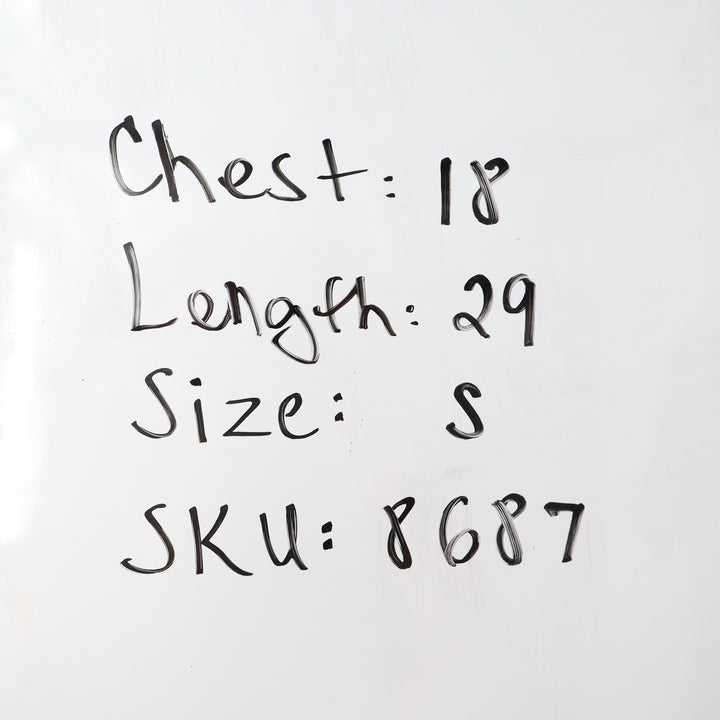 Chest: 18
Length: 29
Size: S
SKU: 8687